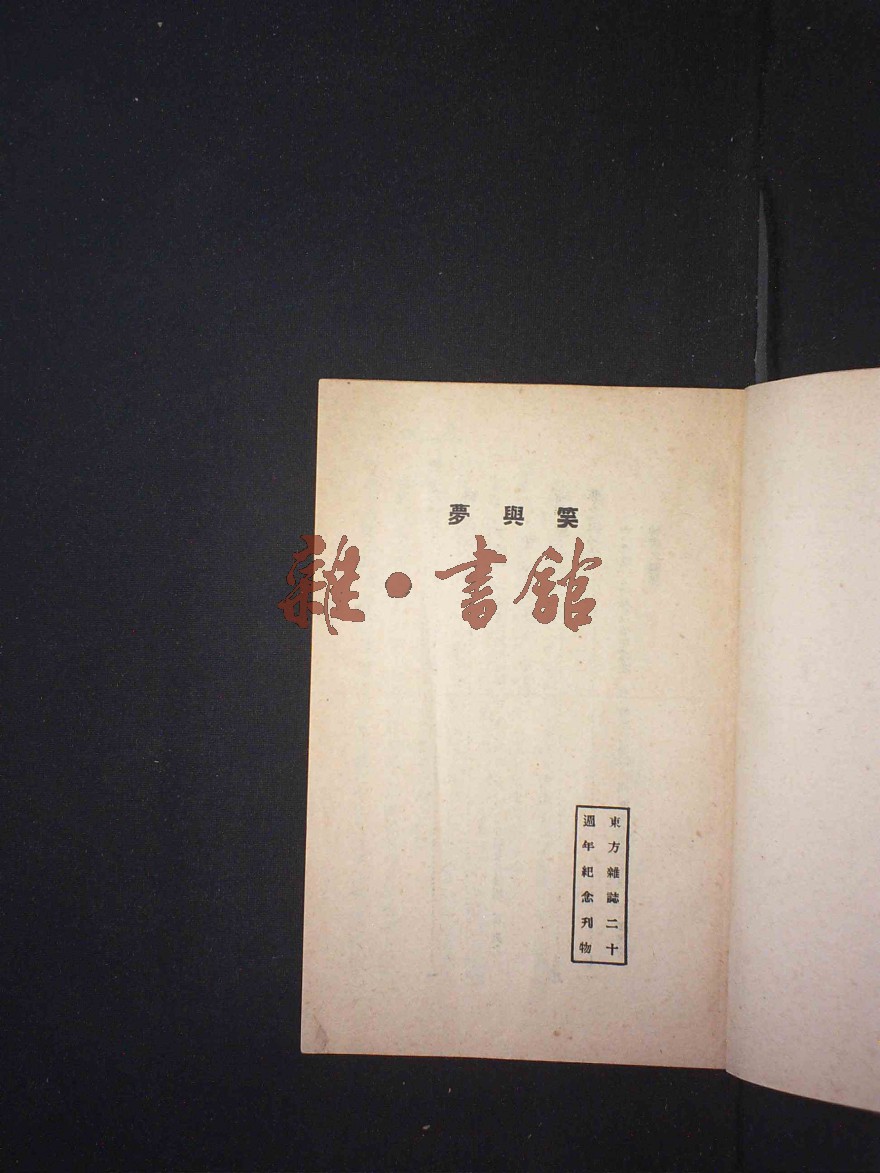 笑與夢
雜·書館
東方雜誌二十
週年紀念刊物